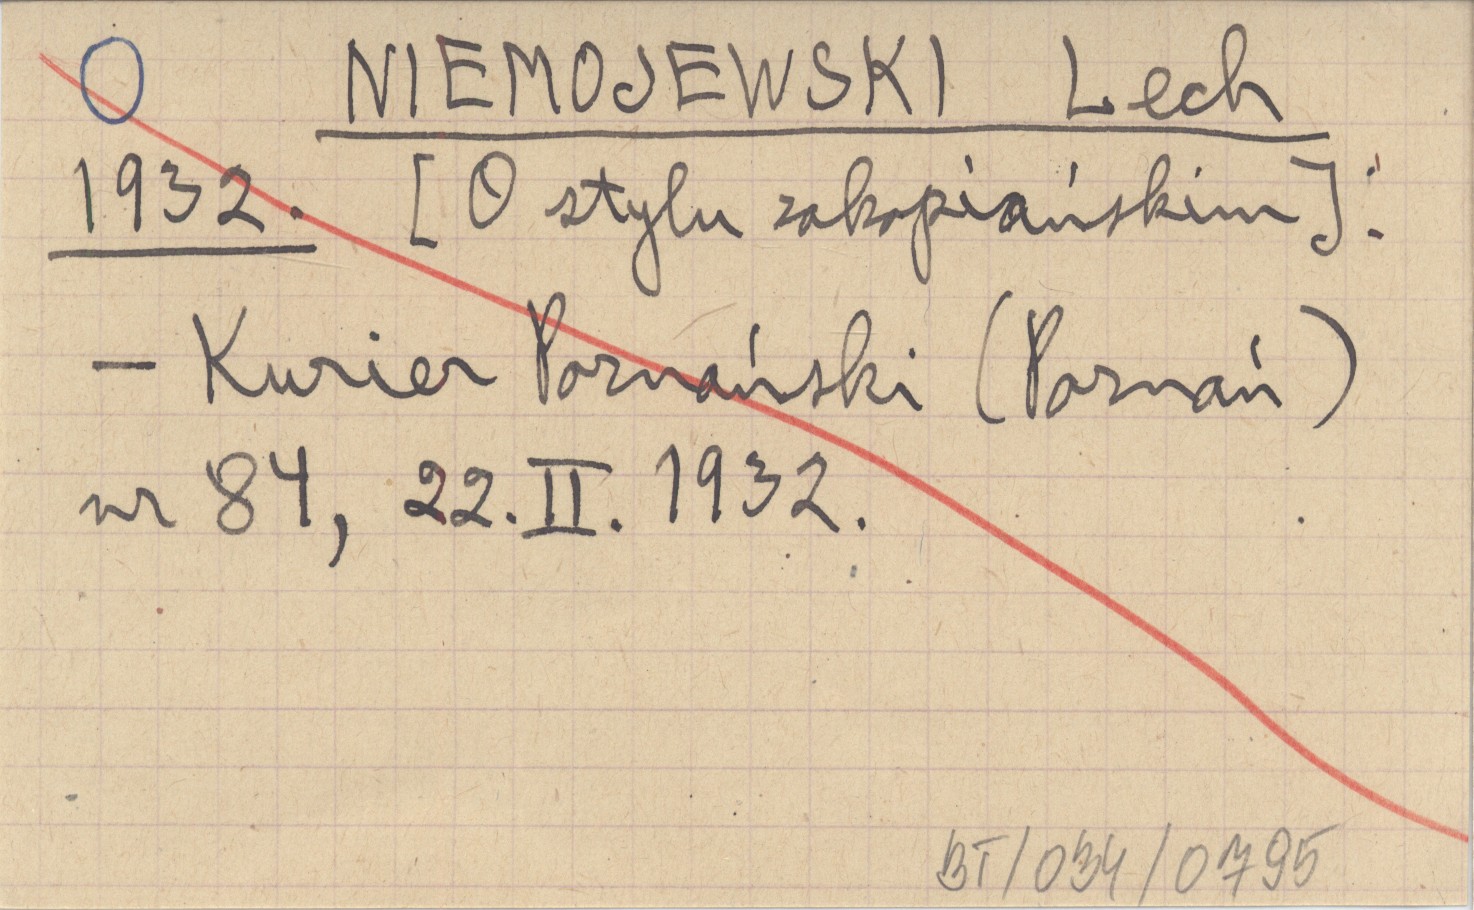 O NIEMOJEWSKI Lech
1932. [O stylu zakopiańskim]:
– Kurier Poznański (Poznań)
nr 84, 22.II.1932.
BT/034/0795